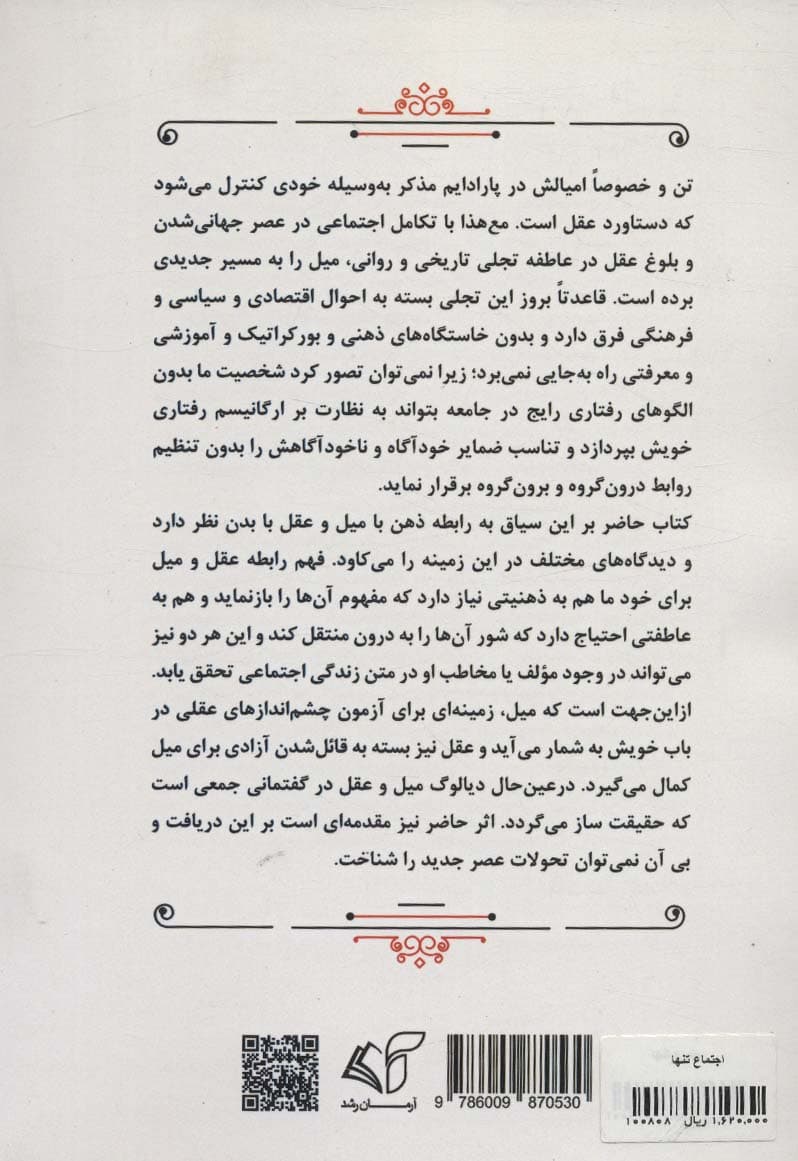 تن و خصوصاً امیالش در پارادایم مذکر به‌وسیله خودی کنترل می‌شود
که دستاورد عقل است. مع‌هذا با تکامل اجتماعی در عصر جهانی‌شدن
و بلوغ عقل در عاطفه تجلی تاریخی و روانی، میل را به مسیر جدیدی
برده است. قاعدتاً بروز این تجلی بسته به احوال اقتصادی و سیاسی و
فرهنگی فرق دارد و بدون خاستگاه‌های ذهنی و بورکراتیک و آموزشی
و معرفتی راه به‌جایی نمی‌برد؛ زیرا نمی‌توان تصور کرد شخصیت ما بدون
الگوهای رفتاری رایج در جامعه بتواند به نظارت بر ارگانیسم رفتاری
خویش بپردازد و تناسب ضمایر خودآگاه و ناخودآگاهش را بدون تنظیم
روابط درون‌گروه و برون‌گروه برقرار نماید.
کتاب حاضر بر این سیاق به رابطه ذهن با میل و عقل با بدن نظر دارد
و دیدگاه‌های مختلف در این زمینه را می‌کاود. فهم رابطه عقل و میل
برای خود ما هم به ذهنیتی نیاز دارد که مفهوم آن‌ها را بازنماید و هم به
عاطفتی احتیاج دارد که شور آن‌ها را به درون منتقل کند و این هر دو نیز
می‌تواند در وجود مؤلف یا مخاطب او در متن زندگی اجتماعی تحقق یابد.
ازاین‌جهت است که میل، زمینه‌ای برای آزمون چشم‌اندازهای عقلی در
باب خویش به شمار می‌آید و عقل نیز بسته به قائل‌شدن آزادی برای میل
کمال می‌گیرد. درعین‌حال دیالوگ میل و عقل در گفتمانی جمعی است
که حقیقت ساز می‌گردد. اثر حاضر نیز مقدمه‌ای است بر این دریافت و
بی آن نمی‌توان تحولات عصر جدید را شناخت.
آرمان رشد
9 786009 870530
اجتماع تنها
۱۰۰۸۰۸ ۱,۶۲۰,۰۰۰ ریال